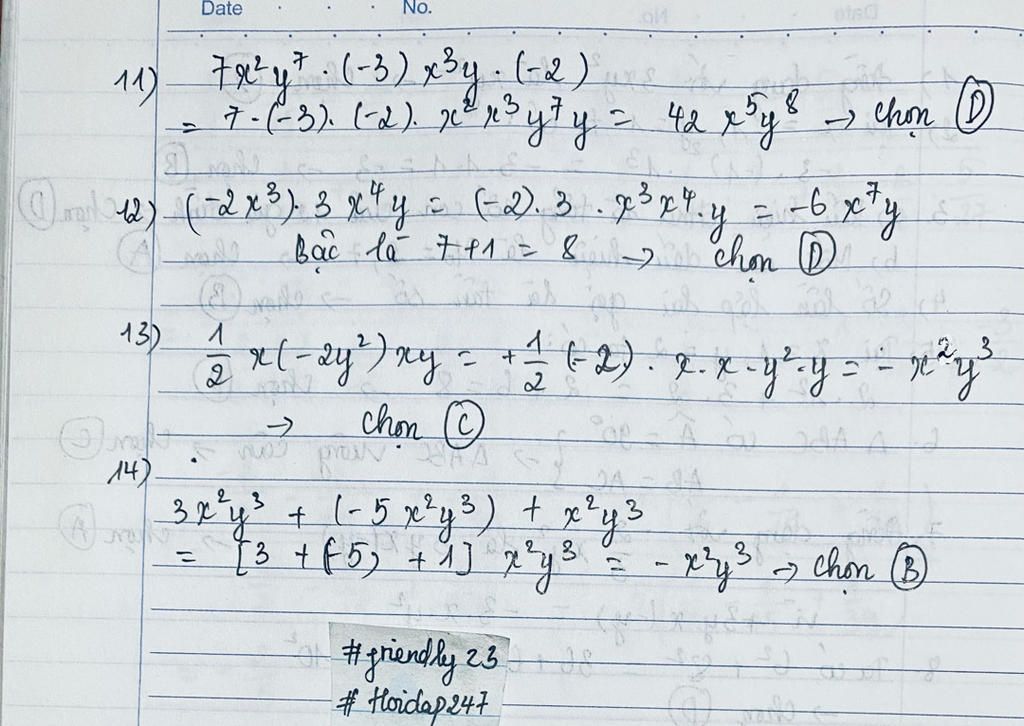 Date . . . No.
11) 7x² y⁷ · (-3) x³y · (-2)
= 7 · (-3) · (-2) · x² x³ y⁷ y = 42 x⁵y⁸ → chọn Ⓓ
12) (-2x³) · 3 x⁴y = (-2) · 3 · x³x⁴ · y = -6 x⁷y
Bậc là 7+1 = 8 → chọn Ⓓ
13) 1/2 x(-2y²) xy = +1/2 (-2) · x · x · y² · y = - x²y³
→ chọn Ⓒ
14)
3x²y³ + (-5 x²y³) + x²y³
= [3 + (-5) + 1] x²y³ = - x²y³ → chọn Ⓑ
#friendly 23
# Hoidap247